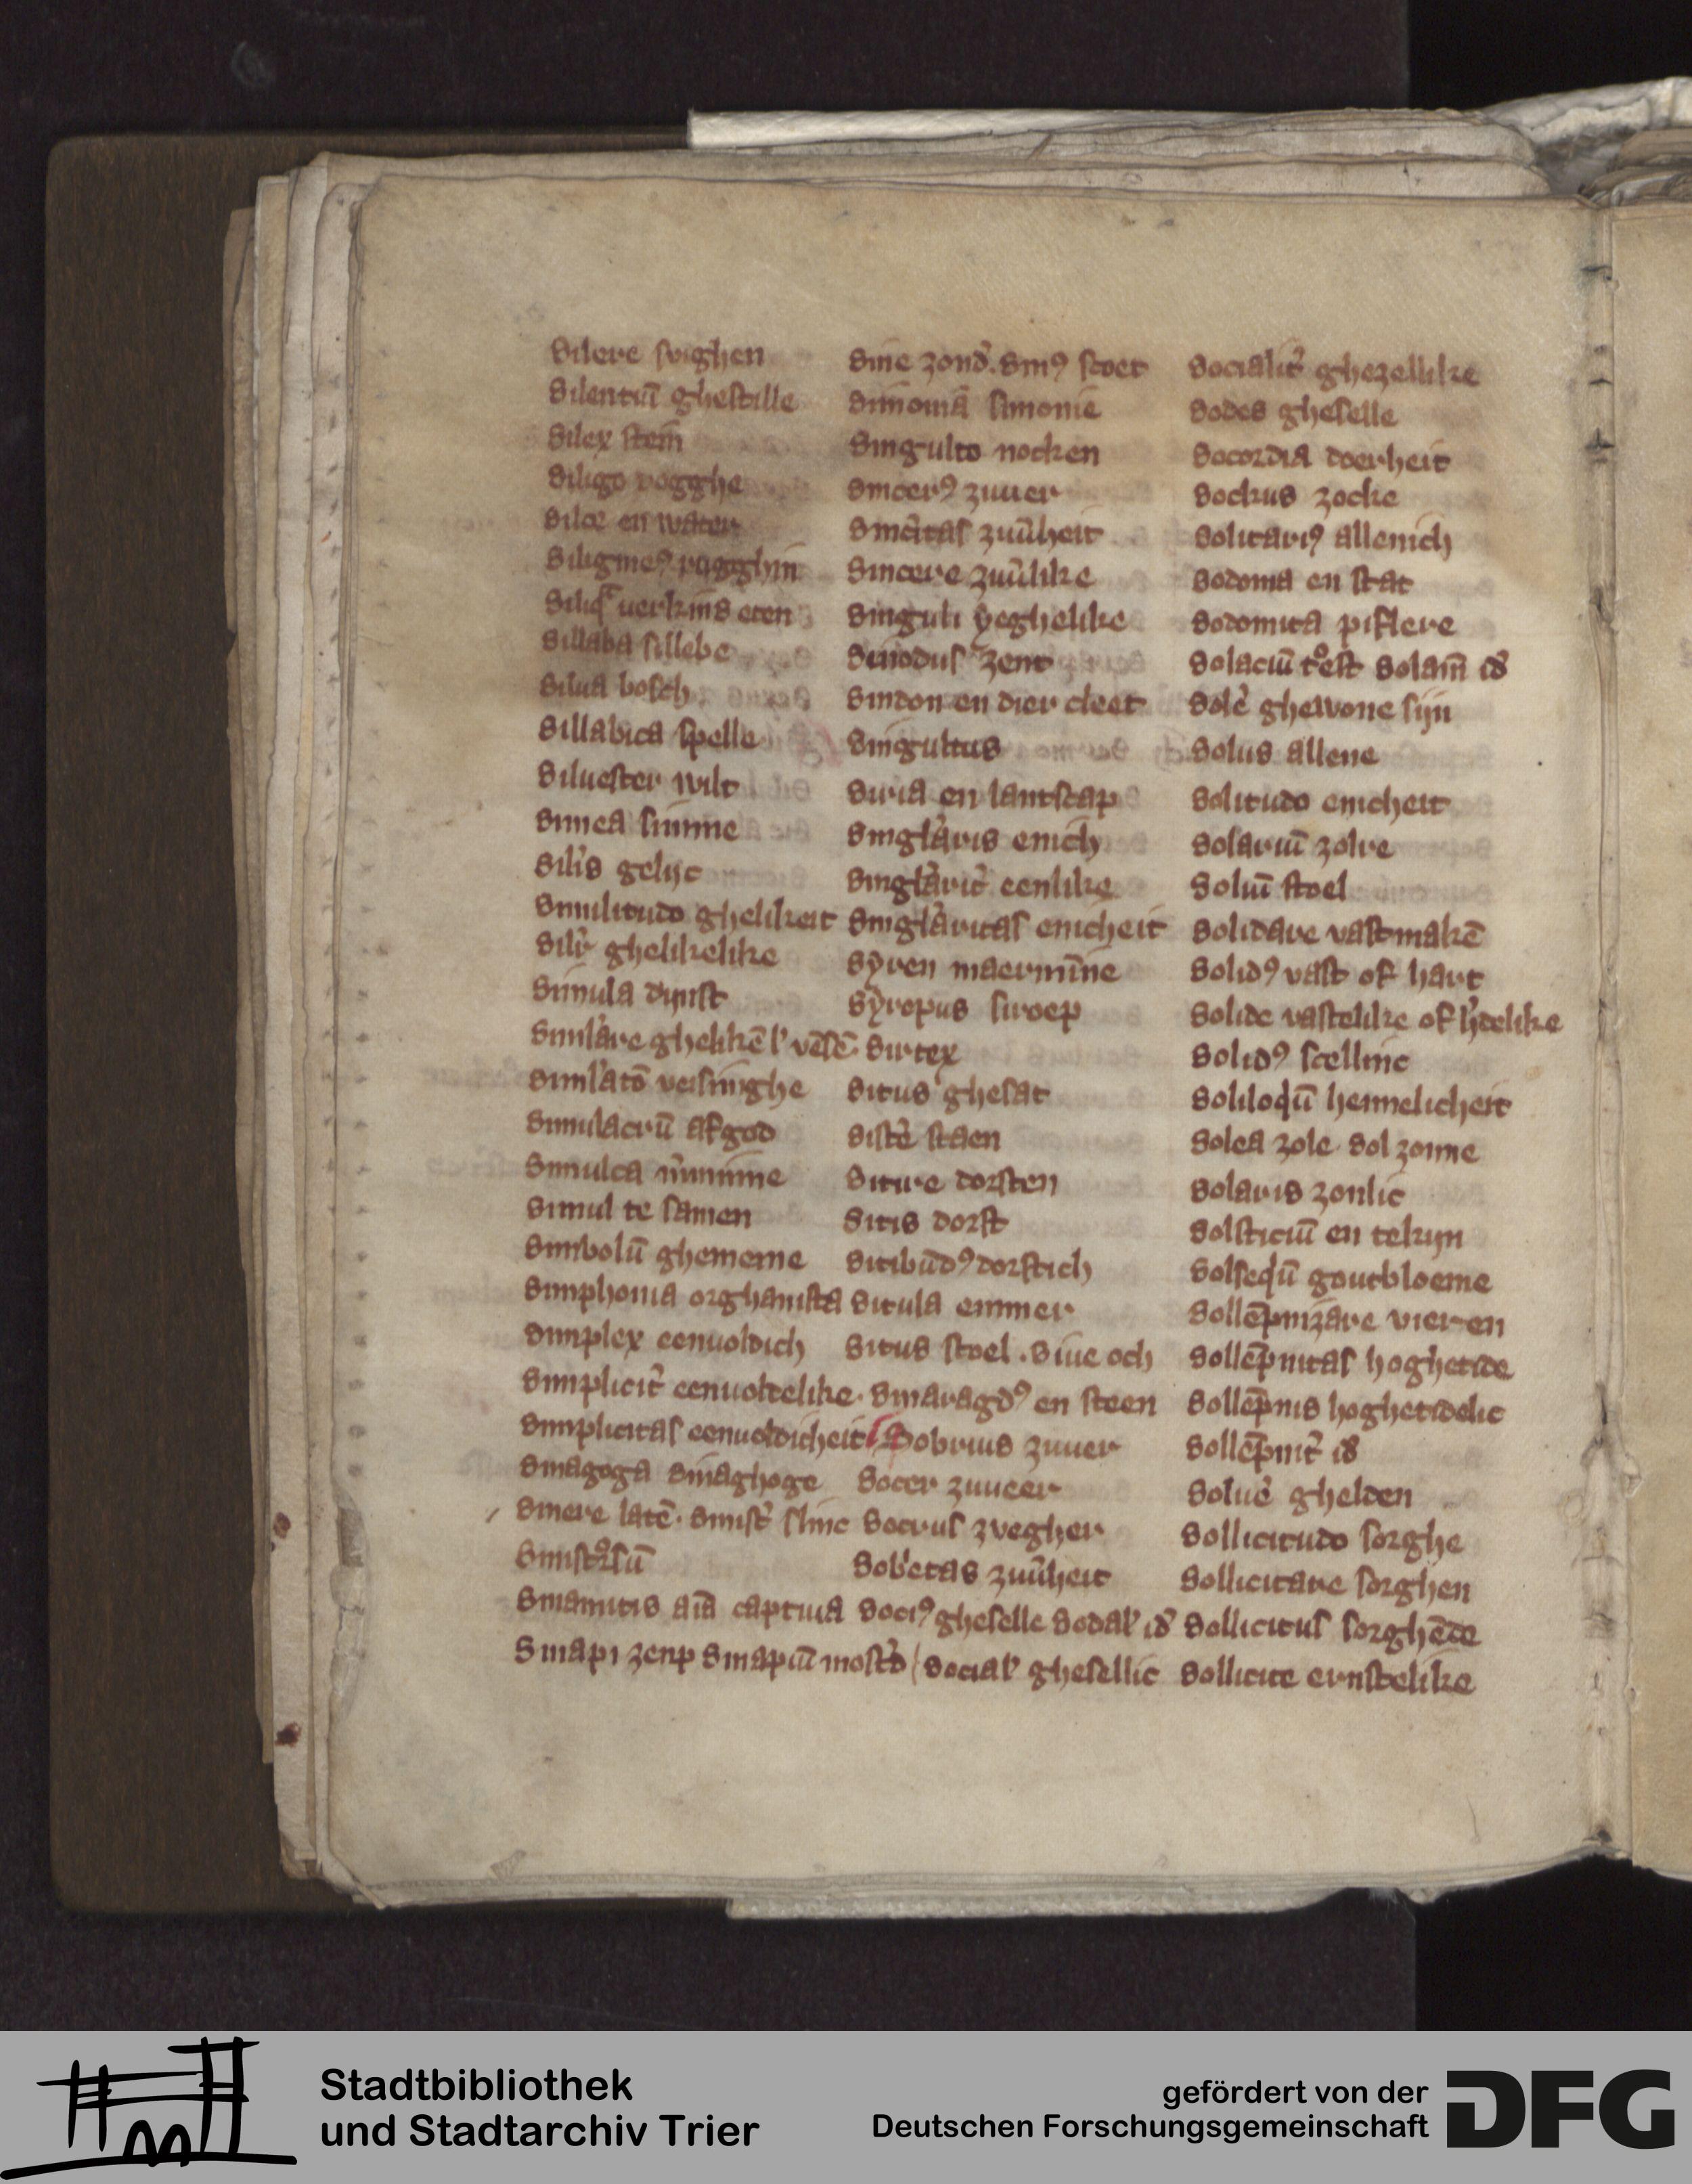 Silere suighen
Silentiū ghestille
Silex stein
Siligo rogghe
Siloe en water
Siligineꝰ rogghin
Siliqᷓ uerkins eten
Sillaba sillebe
Silua bosch
Sillabica spelle
Siluester wilt
Simea simme
Sil'is gelijc
Similitudo ghelikeit
Sil'r ghelikelike
Simula dunst
Simlare ghelikē l' vēsē
Siml'atō veisinghe
Simulacrū afgod
Simulca
Simul te samen
Simbolū ghemeine
Simphonia orghanista
Simplex eenuoldich
Simplicit' eenuoltelike
Simplicitas eenuoldicheit
Sinagoga sinaghoge
Sinere latē. Sinist' slinc
Sinistrsū
Sinamitis aīā captiua
Sinapi zenp Sinapiū mostd'
Sine zond'. Sinꝰ scoet
Simoniā simonie
Singulto nocken
Sincerꝰ zuuer
Sinc'itas zuūheit
Sincere zuūlike
Singuli yeghelike
Sinodus zent
Sindon en dier cleet
Singultus
Siria en lantscap
Singl'aris enich
Singl'arit' eenlike
Singl'aritas enicheit
Syren maermīne
Syropus siroep
Sirtex
Situs ghesat
Sist'e staen
Sitire dorsten
Sitis dorst
Sitibūdꝰ dorstich
Situla emmer
Situs stoel. Siue och
Smaragdꝰ en steen
Sobrius zuuer
Socer zuueer
Socrus zvegher
Sob'etas zuūheit
Sociꝰ gheselle Sodal' id'
Social' ghesellic
Socialit' ghezellike
Sodes gheselle
Socordia doerheit
Sockus zocke
Solitariꝰ allenich
Sodoma en stat
Sodomita
Solaciū tᷓoest Solam̄ id'
Sole' ghewone sijn
Solus allene
Solitudo enicheit
Solariū zolre
Soliū stoel
Solidare vastmakē
Solidꝰ vast of hart
Solide vastelike of
Solidꝰ scellinc
Soliloqū heimelicheit
Solea zole. Sol zonne
Solaris zonlic
Solsticiū en tekijn
Solseqū goutbloeme
Sollēpnizare vieren
Sollēpnitas hoghetide
Sollēpnis hoghetidelic
Sollēpnit' id'
Solue' ghelden
Sollicitudo sorghe
Sollicitare sorghen
Sollicitus sorghēde
Sollicite ernstelike
Stadtbibliothek
und Stadtarchiv Trier
gefördert von der
Deutschen Forschungsgemeinschaft
DFG